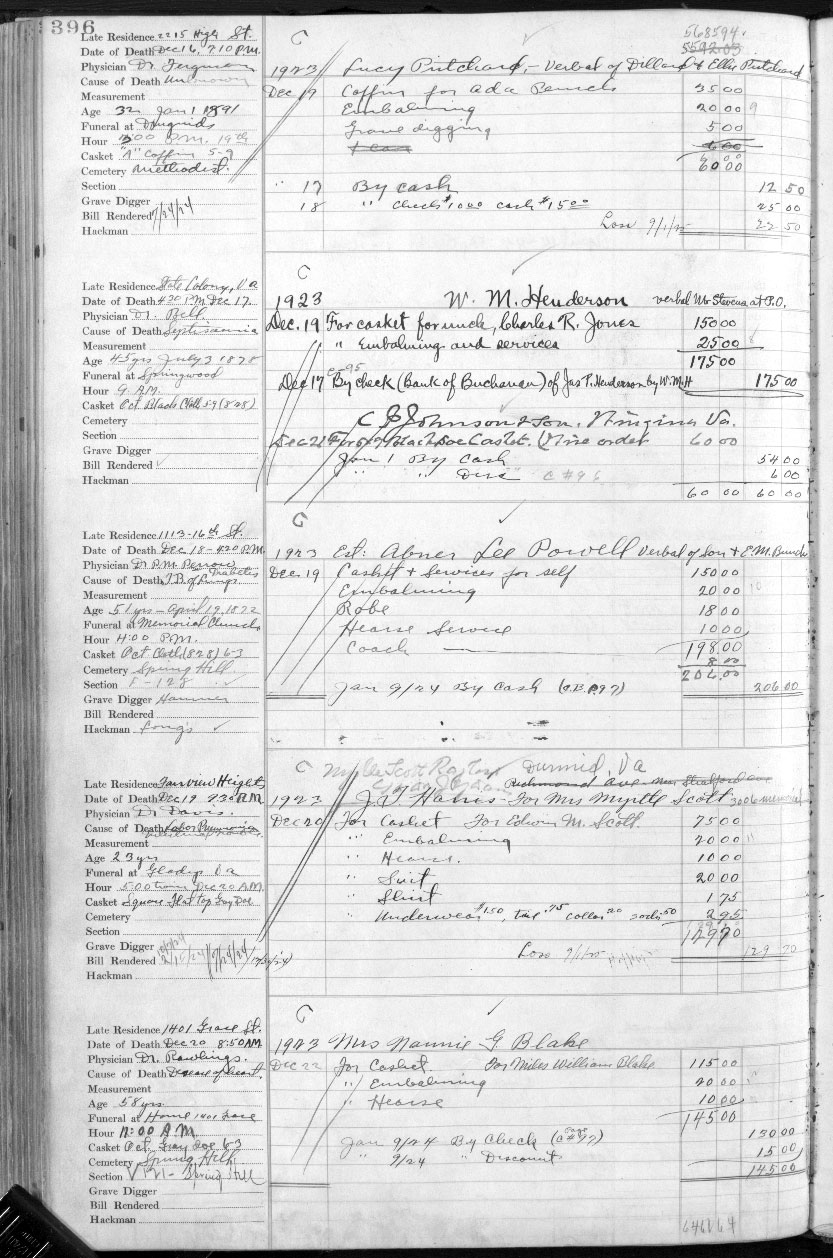 396
568594.
5592.03
Late Residence 2215 High St.
Date of Death Dec 16, 710 P.M.
Physician Dr. Ferguson
Cause of Death Unknown
Measurement
Age 32 Jan 1 1891
Funeral at Duiguids
Hour 3:00 P.M. 19th
Casket "A" Coffin 5-9
Cemetery Methodist.
Section
Grave Digger
Bill Rendered 7/24/24
Hackman
C
1923 Lucy Pritchard, - Verbal of Dillard & Ellis Pritchard
Dec 17 Coffin for Ada 35 00
Embalming 20 00 9
Grave digging 5 00
60 00
" 17 By Cash 12 50
18 " Check $10 00 cash $15 00 25 00
Loss 9/1/25 22 50
Late Residence State Colony, Va
Date of Death 4 30 P.M. Dec 17
Physician Dr. Bell
Cause of Death Septicaemia
Measurement
Age 45 yrs July 3 1878
Funeral at Springwood
Hour 9 A.M.
Casket Oct. Black Cloth 5-9 (828)
Cemetery
Section
Grave Digger
Bill Rendered
Hackman
C
1923 W. M. Henderson verbal Mr Stevens at P.O.
Dec. 19 For casket for uncle, Charles R. Jones 150 00
" Embalming and services 25 00 8
175 00
C 95
Dec 17 By check (Bank of Buchanan) of Jas P. Henderson by W.M.H 175 00
C P Johnson & Son. Wingina Va.
Dec 21 For 5-9 Black Doe Casket. (Wire order 60 00
Jan 1 By Cash 54 00
" " Disc C # 96 6 00
60 00 60 00
Late Residence 1113-16th St.
Date of Death Dec 18 - 120 P.M.
Physician Dr P.M.
Cause of Death T.B. of Lungs Diabetes
Measurement
Age 51 yrs - April 19, 1872
Funeral at Memorial Church
Hour 4:00 P.M.
Casket Oct Cloth (828) 6-3
Cemetery Spring Hill
Section F-128
Grave Digger Hammer
Bill Rendered
Hackman Long's
C
1923 Est: Abner Lee Powell Verbal of Son & E.M. Bunch
Dec 19 Casket & Services for self 150 00
Embalming 20 00 10
Robe 18 00
Hearse Service 10 00
Coach — 198.00
8 00
206.00
Jan 9/24 By Cash (C.B. P.97) 206.00
Late Residence Fairview Heights
Date of Death Dec 19 9 30 P.M.
Physician Dr Davis.
Cause of Death Lobar Pneumonia
Measurement
Age 23 yrs
Funeral at Gladys Va
Hour 5:00 train Dec 20 A.M.
Casket Square Flat top Gray Doe
Cemetery
Section
Grave Digger
Bill Rendered 7/24/24
Hackman
C
Durmid, Va
1923 For Mrs Myrtle Scott 3006 memorial
Dec 20 For Casket For Edwin M. Scott. 75 00
" Embalming 20 00 11
" Hearse. 10 00
" Suit 20 00
" Shirt 1 75
" Underwear $1 50, tie 75 collar 20 socks 50 2 95
129 70
Loss 9/1/25 129 70
Late Residence 1401 Grace St.
Date of Death Dec 20 8:50 AM
Physician Dr. Rawlings.
Cause of Death Disease of heart.
Measurement
Age 58 yrs
Funeral at Home 1401 Grace
Hour 11:00 A.M.
Casket Oct. Gray Doe 6-3
Cemetery Spring Hill
Section V 121 - Spring Hill
Grave Digger
Bill Rendered
Hackman
C
1923 Mrs Nannie G Blake
Dec 22 For Casket. For Miles William Blake 115 00
" Embalming 20 00
" Hearse 10 00
145 00
Jan 9/24 By Check (C # Page 97) 130 00
" 9/24 " Discount 15 00
145 00
646164